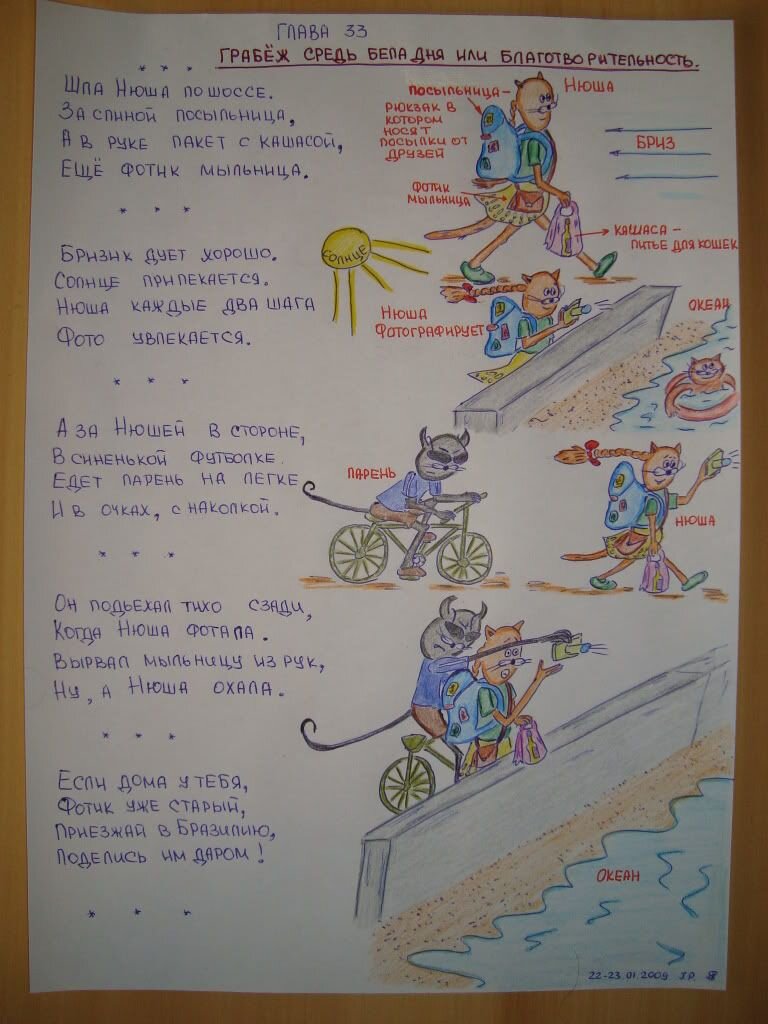 ГЛАВА 33
ГРАБЁЖ СРЕДЬ БЕЛА ДНЯ ИЛИ БЛАГОТВОРИТЕЛЬНОСТЬ.
* * *
ШЛА НЮША ПО ШОССЕ.
ЗА СПИНОЙ ПОСЫЛЬНИЦА,
А В РУКЕ ПАКЕТ С КАШАСОЙ,
ЕЩЁ ФОТИК МЫЛЬНИЦА.
* * *
БРИЗИК ДУЕТ ХОРОШО.
СОЛНЦЕ ПРИПЕКАЕТСЯ.
НЮША КАЖДЫЕ ДВА ШАГА
ФОТО УВЛЕКАЕТСЯ.
* * *
А ЗА НЮШЕЙ В СТОРОНЕ,
В СИНЕНЬКОЙ ФУТБОЛКЕ.
ЕДЕТ ПАРЕНЬ НА ЛЕГКЕ
И В ОЧКАХ, С НАКОЛКОЙ.
* * *
ОН ПОДЬЕХАЛ ТИХО СЗАДИ,
КОГДА НЮША ФОТАЛА.
ВЫРВАЛ МЫЛЬНИЦУ ИЗ РУК,
НУ, А НЮША ОХАЛА.
* * *
ЕСЛИ ДОМА У ТЕБЯ,
ФОТИК УЖЕ СТАРЫЙ,
ПРИЕЗЖАЙ В БРАЗИЛИЮ,
ПОДЕЛИСЬ ИМ ДАРОМ!
* * *
ПОСЫЛЬНИЦА-
РЮКЗАК В
КОТОРОМ
НОСЯТ
ПОСЫЛКИ ОТ
ДРУЗЕЙ
НЮША
БРИЗ
ФОТИК
МЫЛЬНИЦА
КАШАСА -
ПИТЬЕ ДЛЯ КОШЕК
СОЛНЦЕ
НЮША
ФОТОГРАФИРУЕТ
ОКЕАН
ПАРЕНЬ
НЮША
ОКЕАН
22-23.01.2009 J.P.